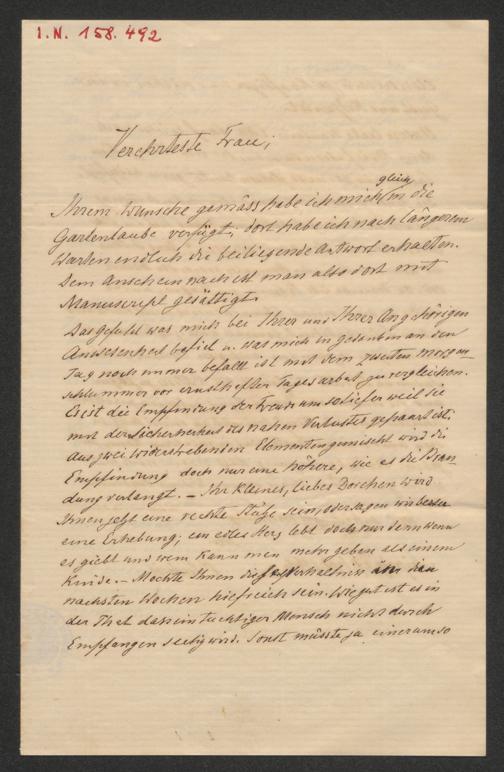 I.N. 158.492
Verehrteste Frau;
gleich
Ihrem Wunsche gemäss habe ich mich in die
Gartenlaube verfügt, dort habe ich nach längerem
Warten endlich die beiliegende Antwort erhalten.
Dem Anschein nach ist man also dort mit
Manuscript gesättigt.
Das Gefühl was mich bei Ihrer und Ihrer Angehörigen
Anwesenheit befiel u. das mich in gedenken an den
Tag noch immer befällt ist mit dem zweiten Morgen
schlummer vor ernsthafter Tagesarbeit zu vergleichen.
Es ist die Empfindung der Freude um so tiefer weil sie
mit der Sicherheit des nahen Verlustes gepaart ist.
Aus zwei widerstrebenden Elementen gemischt wird die
Empfindung doch nur eine höhere, wie es die
verlangt. – Ihr kleines, liebes Dorchen wird
Ihnen jetzt eine rechte Stütze sein, oder sagen wir besser
eine Erhebung; ein edles Herz lebt doch nur dann wenn
es giebt und wem kann man mehr geben als einem
Kinde. – Möchte Ihnen dies Verhältniss in den
nächsten Wochen hilfreich sein. Wie gut ist es in
der That dass ein tüchtiger Mensch nicht durch
Empfangen seelig wird. Sonst müsste ja einer um so